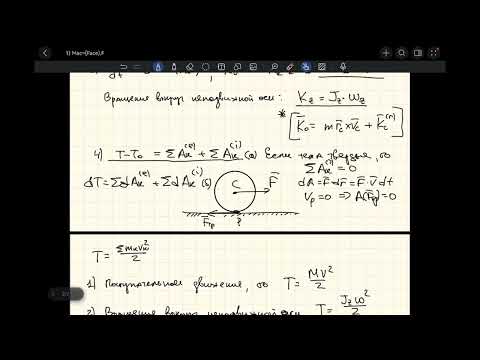 1) Mac=(Face).F
Вращение вокруг неподвижной оси: K_z = J_z · ω_z
* [K̄_o = m r̄_c × v̄_c + K̄_c^(r)]
4) T - T_o = ΣA_k^(e) + ΣA_k^(i) (a) Если тела твердые, то
ΣA_k^(i) = 0
dT = ΣdA_k^(e) + ΣdA_k^(i) (б) C F̄ dA = F̄·dr̄ = F̄·V̄dt
V_p = 0 => A(F̄_тр) = 0
F̄_тр P
T = Σm_k v_k²/2
1) Поступательное движение, то T = MV²/2
2) Вращение вокруг неподвижной оси T = J_z ω²/2